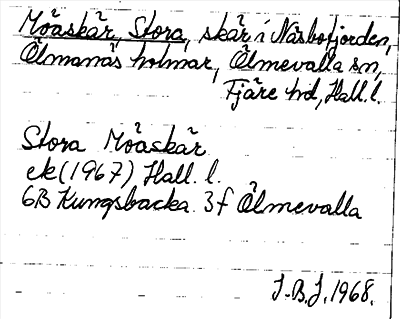 Möaskär, Stora, skär i Näsbofjorden,
Ölmanäs holmar, Ölmevalla sn,
Fjäre hd, Hall. l.
Stora Möaskär
ek (1967) Hall. l.
6B Kungsbacka 3f Ölmevalla
J.B.J. 1968.